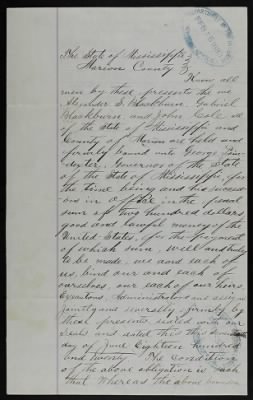 The State of Mississippi
Marion County
Know all
men by these presents that we
Alexander S. Blackburn, Gabriel
Blackburn and John Cole all
of the State of Mississippi and
County of Marion are held and
firmly bound unto George Poin
dexter, Governor of the State
of the State of Mississippi, for
the time being and his success
ors in office in the penal
sum of two hundred dollars,
good and lawful money of the
United States, for the payment
of which sum, well and truly
to be made, we and each of
us, bind our and each of
ourselves, our each of our heirs,
Executors, Administrators and assigns
jointly and severally, firmly by
these presents sealed with our
seals and dated this the
day of June Eighteen hundred
and twenty. The condition
of the above obligation is such
that Whereas the above bounden